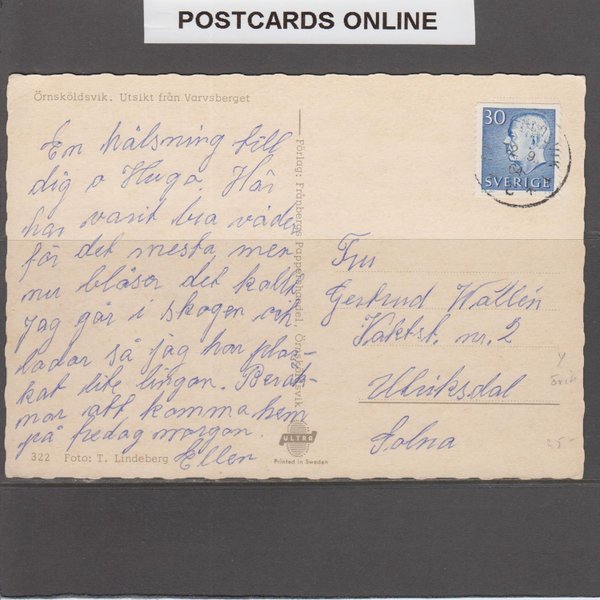 POSTCARDS ONLINE
Örnsköldsvik. Utsikt från Varvsberget
En hälsning till
dig o Hugo. Här
har varit bra väder
för det mesta men
nu blåser det kallt
jag går i skogen och
ladar så jag har ploc-
kat lite lingon. Beräk-
nar att komma hem
på fredag morgon.
Ellen
322 Foto: T. Lindeberg
Förlag: Frånbergs Pappershandel. Örnsköldsvik
ULTRA
Printed in Sweden
30
SVERIGE
Fru
Gertrud Wallén
Vaktst. nr. 2
Ulriksdal
Solna
25-